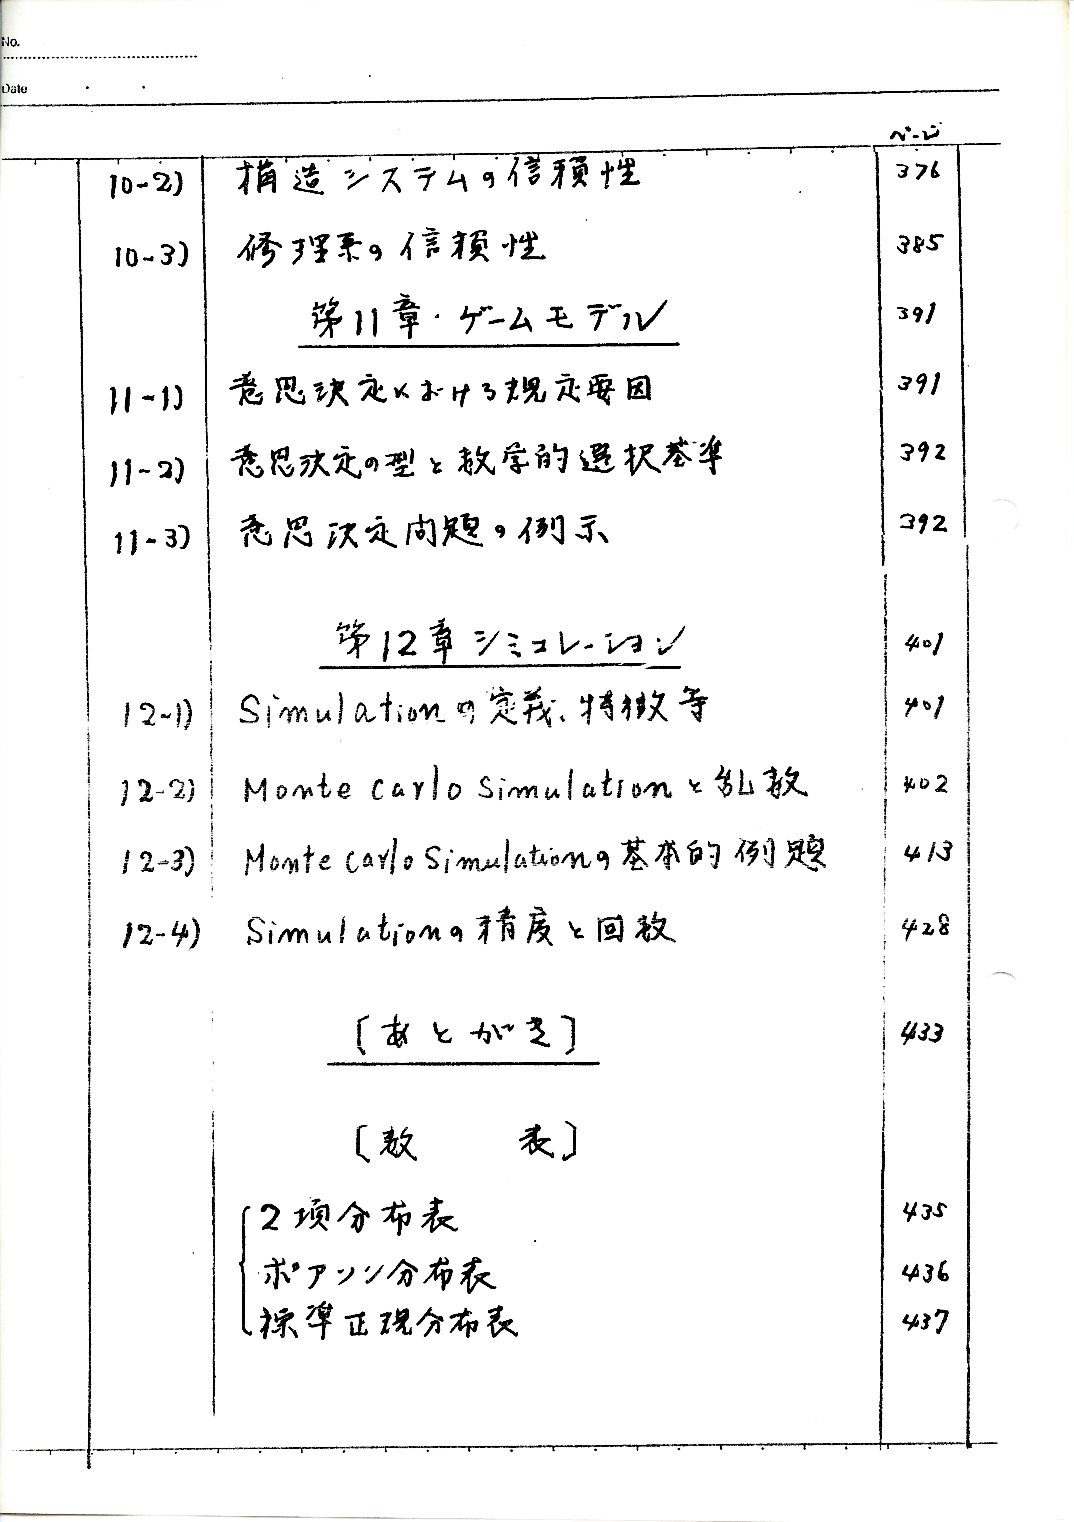 No.
Date
ページ
10-2) 構造システムの信頼性 376
10-3) 修理系の信頼性 385
第11章・ゲームモデル 391
11-1) 意思決定における規定要因 391
11-2) 意思決定の型と数学的選択基準 392
11-3) 意思決定問題の例示 392
第12章 シミュレーション 401
12-1) Simulationの定義、特徴等 401
12-2) Monte Carlo Simulationと乱数 402
12-3) Monte Carlo Simulationの基本的例題 413
12-4) Simulationの精度と回数 428
[あとがき] 433
[数 表]
2項分布表 435
ポアソン分布表 436
標準正規分布表 437